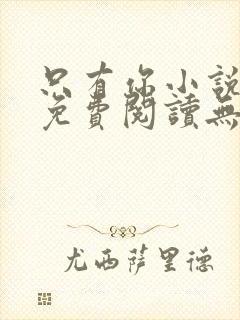 只有你小說
免費閱讀無
尤西薩里德